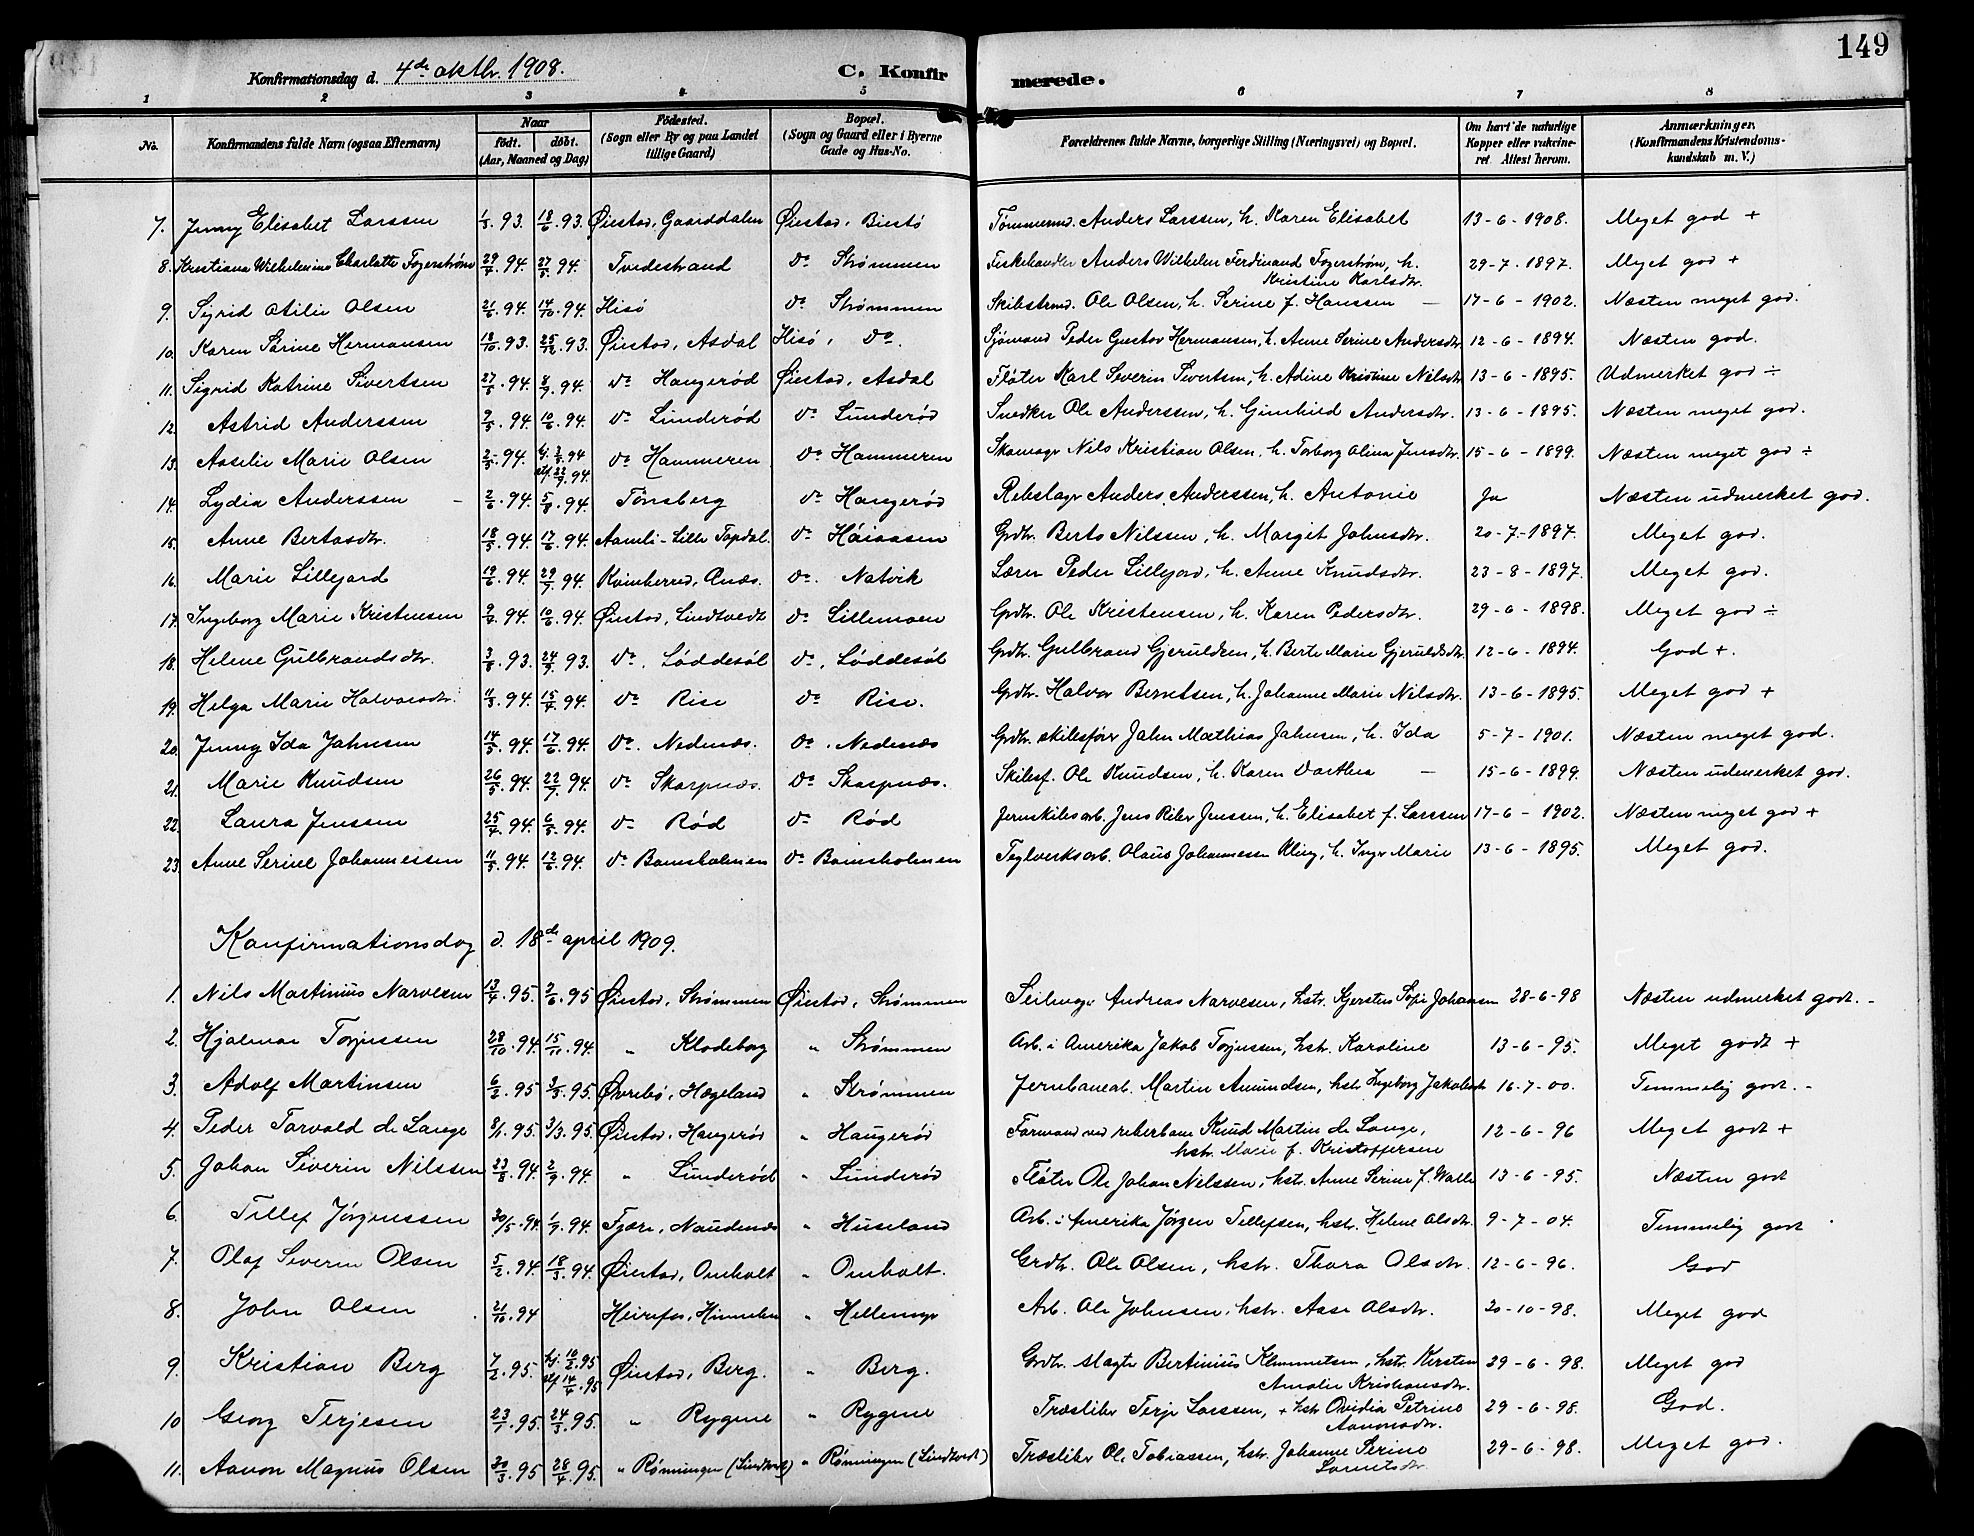 149
Konfirmationsdag d. 4de oktbr. 1908. C. Konfirmerede.
1 2 3 4 5 6 7 8
No. Konfirmandens fulde Navn (ogsaa Efternavn) Naar født. døbt. (Aar, Maaned og Dag) Fødested. (Sogn eller By og paa Landet tillige Gaard) Bopæl. (Sogn og Gaard eller i Byerne Gade og Hus-No. Forældrenes fulde Navne, borgerlige Stilling (Næringsvei) og Bopæl. Om havt de naturlige Kopper eller vakcineret. Attest herom. Anmærkninger. (Konfirmandens Kristendomskundskab m. V.)
7. Jenny Elisabet Larssen 1/3.93. 18/6.93. Øiestad, Gaarddalen Øiestad, Biestø Tømmermd. Anders Larssen, h. Karen Elisabet 13-6-1908. Meget god +
8. Kristiana Wilhelmine Charlotte Fogerstrøm 29/7.94. 27/8.94. Tvedestrand do Strømmen Fiskehandler Anders Wilhelm Ferdinand Fogerstrøm, h. Kristine Karlsdtr. 29-7-1897. Meget god +
9. Sigrid Otilie Olsen 21/6.94. 14/10.94. Hisø do Strømmen Skibstmd. Ole Olsen, h. Serine f. Hanssen — 17-6-1902. Næsten meget god.
10. Karen Sørine Hermansen 18/10.93. 25/12.93. Øiestad, Asdal Hisø, do. Sjømand Peder Gustav Hermansen, h. Anne Serine Andersdtr 12-6-1894. Næsten god.
11. Sigrid Katrine Sivertsen 27/6.94. 8/9.94. do Haugerød Øiestad, Asdal Fløter Karl Severin Sivertsen, h. Adine Kristine Nilsdtr 13-6-1895. Udmerket god ÷
12. Astrid Anderssen 9/5.94. 10/6.94. do Lunderød do Lunderød Snedker Ole Anderssen, h. Gunhild Andersdtr. 13-6-1895. Næsten meget god.
13. Asselie Marie Olsen 2/5.94. hj. 3/5.94 stf. 22/7.94. do Hammeren do Hammeren Skomagr Nils Kristian Olsen, h. Torborg Olina Jensdtr. 15-6-1899. Næsten meget god ÷
14. Lydia Anderssen 2/6.94. 5/8.94. Tønsberg do Haugerød Rebslagr Anders Anderssen, h. Antonie Ja Næsten udmerket god.
15. Anne Bertasdtr. 18/5.94. 17/6.94. Aamli-Lille Topdal. do Håiaasen Grdtr. Berto Nilssen, h. Margit Johnsdtr. 20-7-1897. Meget god.
16. Marie Lillejord 19/6.94. 29/7.94. Kvinherred, Anæs. do. Natvik Lærer Peder Lillejord, h. Anne Knudsdtr. 23-8-1897. Meget god.
17. Ingeborg Marie Kristensen 94. 10/6.94. Øiestad, Lindtvedt do Lillemoen Grdtr. Ole Kristensen, h. Karen Pedersdtr. 29-6-1898. Meget god ÷
18. Helene Gulbrandsdtr. 3/8.93. 24/9.93. do. Løddesøl do. Løddesøl Grdtr. Gulbrand Gjeruldsen, h. Berte Marie Gjeruldsdtr. 12-6-1894. God +.
19. Helga Marie Halvorsdtr. 11/3.94. 15/4.94. do Rise do Rise. Grdtr. Halvor Berntsen, h. Johanne Marie Nilsdtr. 13-6-1895. Meget god +
20. Jenny Ida Jahnsen 14/5.94. 17/6.94. do. Nedenæs. do. Nedenæs Grdtr. skibsfører Jahn Mathias Jahnsen, h. Ida 5-7-1901. Næsten meget god.
21. Marie Knudsen 26/5.94. 22/7.94. do Skarpnæs. do Skarpnæs. Skibsf. Ole Knudsen, h. Karen Dorthea — 15-6-1899. Næsten udmerket god.
22. Laura Jenssen 25/4.94. 6/5.94. do Rød do Rød Jernskibsarb. Jens Riber Jenssen, h. Elisabet f. Larssen 17-6-1902. Næsten meget god +
23. Anne Serine Johannessen 11/5.94. 12/6.94. do Bomsholmen do Bomsholmen Teglverksarb. Olaus Johannessen Kling, h. Inger Marie 13-6-1895. Meget god.
Konfirmationsdag d. 18de april 1909.
1. Nils Martinius Narvesen 13/4.95. 2/6.95 Øiestad, Strømmen Øiestad, Strømmen Seilmagr Andreas Narvesen, hstr. Kjersten Sofie Johansen 28-6-98 Næsten udmerket godt. -
2. Hjalmar Torjussen 28/10.94. 15/11.94. " Klodeborg " Strømmen Arb. i Amerika Jakob Torjussen, hstr. Karoline 13-6-95. Meget godt +
3. Adolf Martinsen 6/2.95 3/3.95. Øvrebø, Hægeland " Strømmen Jernbanearb. Martin Amundsen, hstr. Ingeborg Jakobsdtr 16-7-00. Temmelig godt. -
4. Peder Torvald de Lange 8/1.95. 3/3.95. Øiestad, Haugerød " Haugerød Formand ved reberbane Knud Martin de Lange, hstr. Marie f. Kristoffersen 12-6-96 Meget godt +
5. Johan Siverin Nilssen 23/8.94. 2/9.94. " Lunderød " Lunderød Fløter Ole Johan Nilssen, hst. Anne Serine f. Walle 13-6-95. Næsten godt
6. Tellef Jørgenssen 30/5.94. 1/7.94. Tjøre, Naudenæs " Huseland Arb. i Amerika Jørgen Tellefsen, hstr. Helene Olsdtr. 9-7-04. Temmelig godt
7. Olaf Severin Olsen 5/2.94. 18/3.94. Øiestad, Omholt " Omholt. Grdtr. Ole Olsen, hstr. Thora Olsdtr. 12-6-96. God
8. John Olsen 21/10.94 Heirefos, Himmelen " Hellemyr Arb. Ole Johnsen, hstr. Aase Olsdtr. 20-10-98. Meget god
9. Kristian Berg 7/2.95. hj. 10/2.95 stf 14/4.95 Øiestad, Berg. " Berg. Grdtr. slagter Bertinius Klemmetsen, hstr. Kirsten Amalie Kristiansdtr. 29-6-98. Meget god
10 Georg Terjesen 23/1.95. 24/3.95. " Rygene " Rygene Træsliber Terje Larssen, + hstr Ovidia Petrine Aanonsdtr. 29-6-98. God.
11. Aanon Magnus Olsen 20/3.95 28/4.95. " Rønningen (Lindtvedt) " Rønningen (Lindtvedt) Træsliber Ole Tobiassen, hstr. Johanne Serine Lorentsdtr. 29-6-98. Meget god.